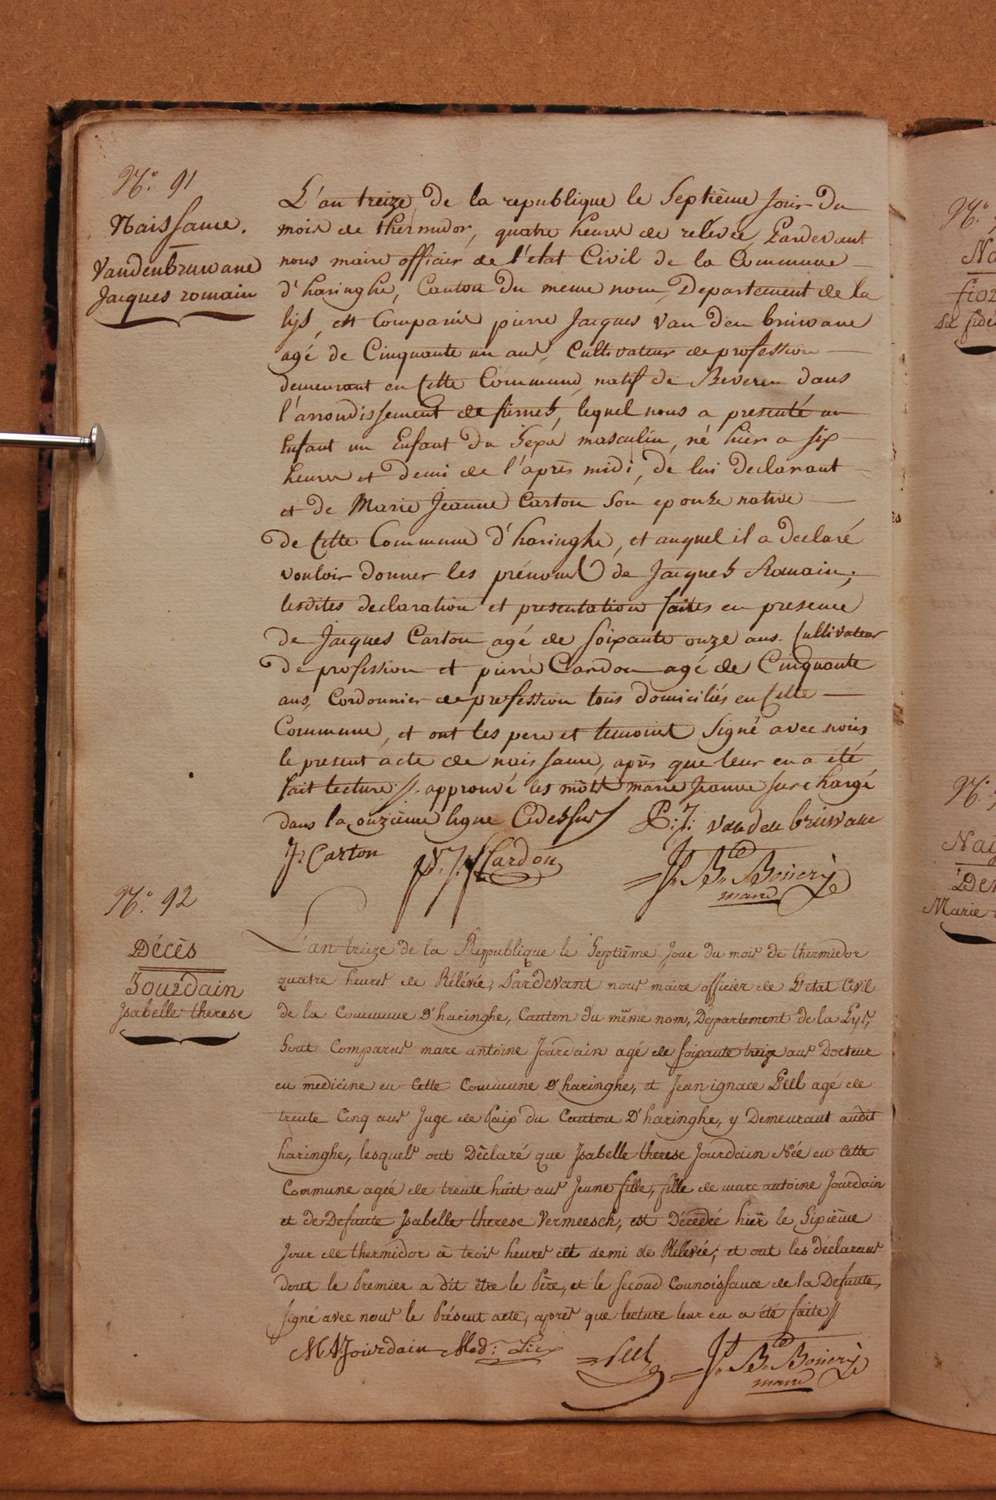 N.° 91
Naissance.
Vandenbruwane
Jacques romain
L'an treize de la republique le Septième Jour du
mois de thermidor, quatre heures de relevée, Pardevant
nous maire officier de l'état Civil de la Commune
d'haringhe, Canton du meme nom, Departement de la
lijs, est Comparûs pierre Jacques Van den bruwane
agé de Cinquante un ans, Cultivateur de profession
demeurant en Cette Commune, natif de Beveren dans
l'arrondissement de furnes, lequel nous a presenté un
Enfant un Enfant du Sexe masculin, né hier a six
heures et demi de l'après midi, de lui Declarant
et de Marie Jeanne Carton Son epouze native
de Cette Commune d'haringhe, et auquel il a declaré
vouloir donner les prénoms de Jacques Romain,
lesdites declaration et presentation faites en presence
de Jacques Carton agé de soixante onze ans. Cultivateur
de profession et pierre Cardon agé de Cinquante
ans, Cordonnier de profession tous domiciliés en Cette
Commune, et ont les pere et temoins Signé avec nous
le present acte de naissance, après que leur en a été
fait lecture //. approuvé les mots marie Jeanne surchargé
dans la onzième ligne Cidessus
P: J: van den bruwane
J: Carton
P. J. Cardon
J. B. Boüerÿ
maire
N.° 92
Décès
Jourdain
Isabelle therese
L'an treize de la République le Septième Jour du mois de thermidor
quatre heures de Rélévée, Pardevant nous maire officier de L'etat Civil
de la Commune D'haringhe, Canton du même nom, Département de la Lys,
Sont Comparus marc antoine Jourdain agé de soixante treize ans Docteur
en medicine en Cette Commune D'haringhe, et Jean ignace Peel agé de
trente Cinq ans Juge de Paix du Canton D'haringhe, y Demeurant audit
haringhe, lesquels ont Déclaré que Isabelle therese Jourdain Née en Cette
Commune agée de trente huit ans Jeune fille, fille de marc antoine Jourdain
et de Defunte Isabelle therese Vermeesch, est Décédée hier le Sixième
Jour de thermidor à trois heures et demi de Rélevée; et ont les déclarans
dont le Premier a dit être le Père, et le second Connoissance de la Defunte,
signé avec nous le Présent acte, après que lecture leur en a été faite //
M A Jourdain Med: Lic:
Peel
J. B. Boüerÿ
maire
N.°